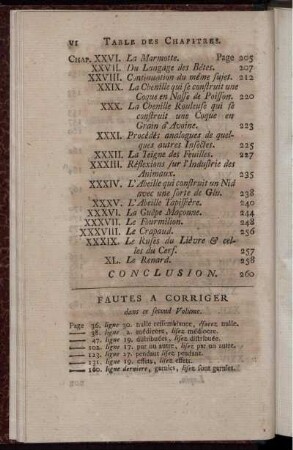 VI TABLE DES CHAPITRES.
CHAP. XXVI. La Marmotte. Page 205
XXVII. Du Langage des Bêtes. 207
XXVIII. Continuation du même sujet. 212
XXIX. La Chenille qui se construit une
Coque en Nasse de Poisson. 220
XXX. La Chenille Rouleuse qui se
construit une Coque en
Grain d'Avoine. 223
XXXI. Procédés analogues de quel-
ques autres Insectes. 225
XXXII. La Teigne des Feuilles. 227
XXXIII. Réflexions sur l'Industrie des
Animaux. 235
XXXIV. L'Abeille qui construit un Nid
avec une sorte de Glu. 238
XXXV. L'Abeille Tapissière. 240
XXXVI. La Guêpe Maçonne. 244
XXXVII. Le Fourmilion. 248
XXXVIII. Le Crapaud. 256
XXXIX. Le Ruses du Lièvre & cel-
les du Cerf. 257
XL. Le Renard. 258
CONCLUSION. 260
FAUTES A CORRIGER
dans ce second Volume.
Page 36. ligne 30. taille lisez taille.
38. ligne 2. médiocres, lisez médiocre.
47. ligne 19. distribuées, lisez distribuée.
102. ligne 17. par un autre, lisez par un autre.
123. ligne 27. pendant lisez pendant.
131. ligne 19. effets, lisez effets.
160. ligne derniere, garnies, lisez sont garnies.